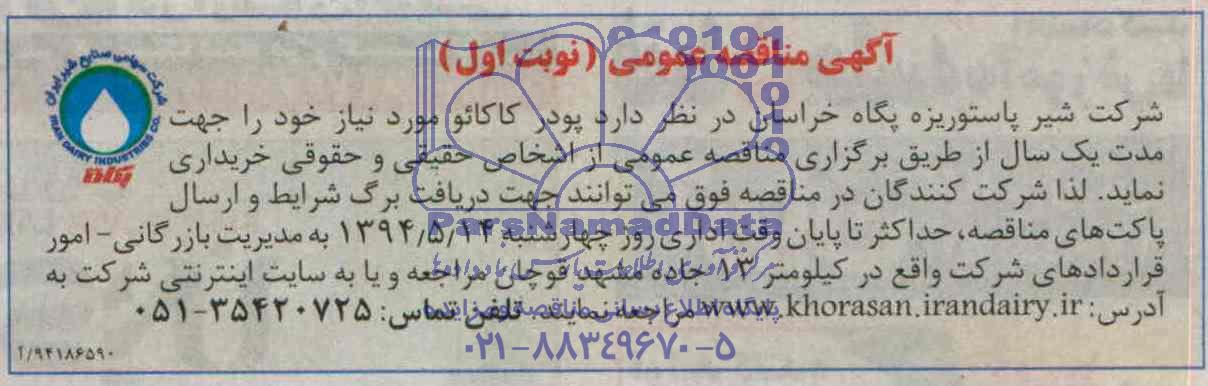 آگهی مناقصه عمومی (نوبت اول)
شرکت شیر پاستوریزه پگاه خراسان در نظر دارد پودر کاکائو مورد نیاز خود را جهت
مدت یک سال از طریق برگزاری مناقصه عمومی از اشخاص حقیقی و حقوقی خریداری
نماید. لذا شرکت کنندگان در مناقصه فوق می توانند جهت دریافت برگ شرایط و ارسال
پاکت‌های مناقصه، حداکثر تا پایان وقت اداری روز چهارشنبه ۱۳۹۴٫۵٫۱۴ به مدیریت بازرگانی - امور
قراردادهای شرکت واقع در کیلومتر ۱۳ جاده مشهد قوچان مراجعه و یا به سایت اینترنتی شرکت به
آدرس: www.khorasan.irandairy.ir مراجعه نمایند. تلفن تماس: ۳۵۴۲۰۷۲۵-۰۵۱
شرکت سهامی صنایع شیر ایران
IRAN DAIRY INDUSTRIES CO.
پگاه
۹۴۱۸۶۵۹۰/آ
ParsNamadData
پایگاه اطلاع رسانی مناقصه و مزایده
۰۲۱-۸۸۳۴۹۶۷۰-۵